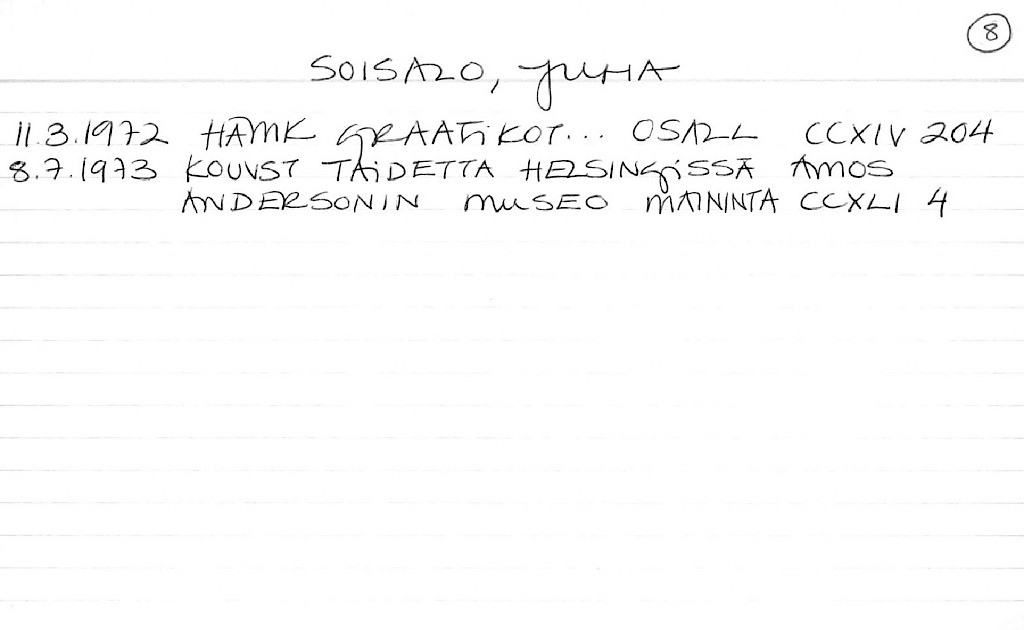 8
SOISALO, JUHA
11.3.1972 HÄMK GRAAFIKOT... OSALL CCXIV 204
8.7.1973 KOUVST TAIDETTA HELSINGISSÄ AMOS
ANDERSONIN MUSEO MAININTA CCXLI 4